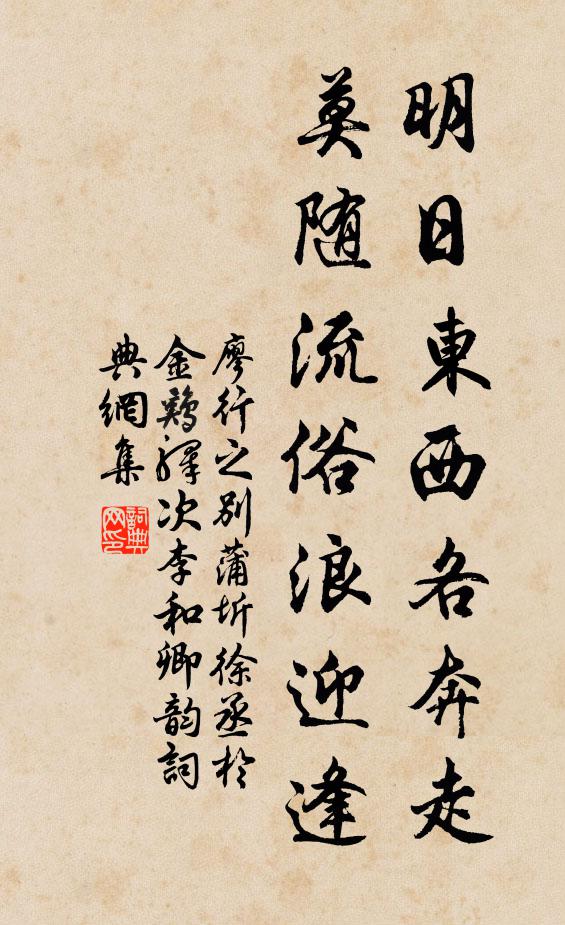 明日東西各奔走
莫随流俗浪迎逢
廖行之别蒲圻徐丞於
金鷄驛次李和卿韵詞
典網集
詞典
网印